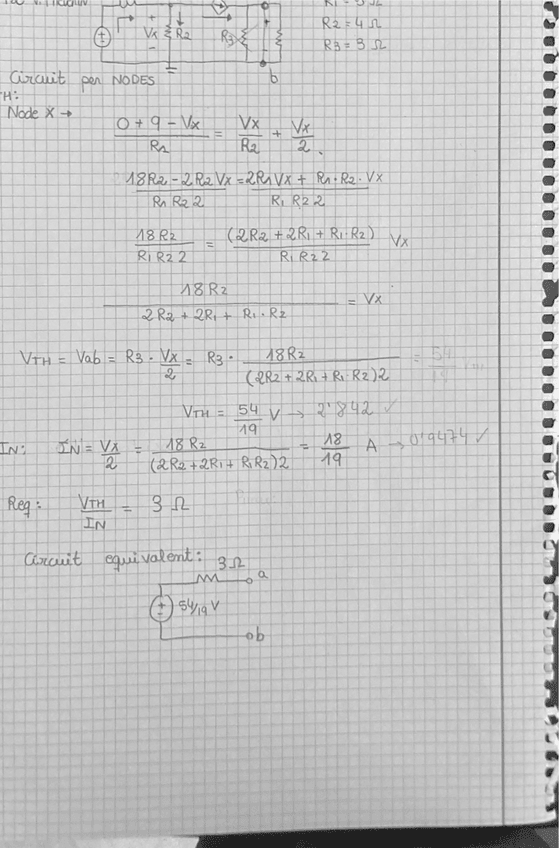 R2 = 4 Ω
+
Vx R2 R3
−
R3 = 3 Ω
b
Circuit per NODES
TH:
Node X →
(0 + 9 − Vx)/R1 = Vx/R2 + Vx/2
(18R2 − 2R2Vx)/(R1 R2 2) = (2R1Vx + R1·R2·Vx)/(R1 R2 2)
18R2/(R1 R2 2) = (2R2 + 2R1 + R1·R2)/(R1 R2 2) Vx
18R2/(2R2 + 2R1 + R1·R2) = Vx
VTH = Vab = R3 · Vx/2 = R3 · 18R2/((2R2 + 2R1 + R1·R2)2) = 54/19
VTH = 54/19 V → 2'842 ✓
IN: IN = Vx/2 = 18R2/((2R2 + 2R1 + R1R2)2) = 18/19 A → 0'9474 ✓
Req: VTH/IN = 3 Ω
Circuit equivalent: 3Ω
a
54/19 V
b